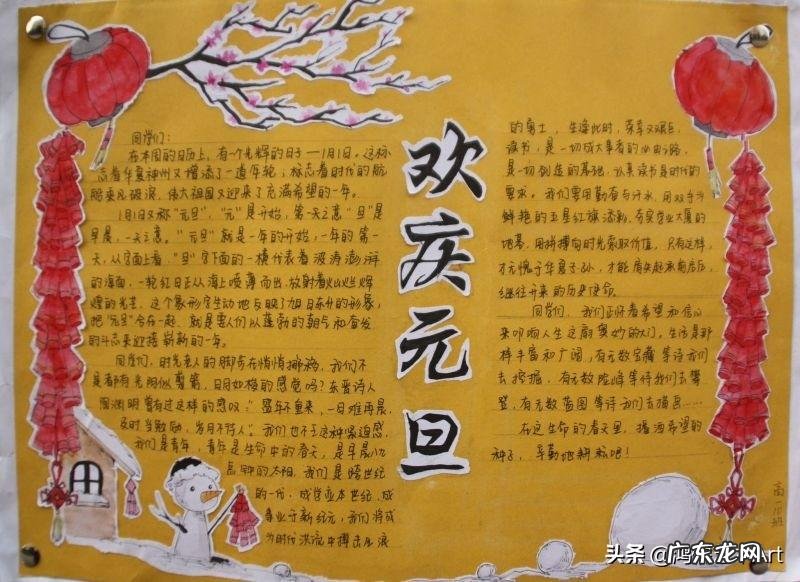 欢庆元旦
同学们：
在本国的日历上，有一个光辉的日子——1月1日。这标
志着华夏神州又增添了一道年轮，标志着时代的航
船乘风破浪，伟大祖国又迎来了充满希望的一年。
1月1日又称"元旦"，"元"是开始，第一天之意"旦"是
早晨，一天之意。"元旦"就是一年的开始，一年的第一
天，从字面上看，"旦"字下面的一横代表着波涛澎湃
的海面，一轮红日正从海上喷薄而出放射着火山火辉
煌的光芒，这个象形字生动地反映了旭日东升的形象，
把"元旦"合在一起，就是要人们以蓬勃的朝气和奋发
的斗志来迎接崭新的一年。
同学们，时光老人的脚步在悄悄挪移，我们不
是都有光阴似箭，日月如梭的感觉吗？东晋诗人
陶渊明曾有过这样的感叹："盛年不重来，一日难再晨，
及时当勉励，岁月不待人"。我们也不乏这种紧迫感，
我们是青年，青年是生命中的春天，是早晨八九
点钟的太阳，我们是跨世纪
的一代，成学业本世纪，成
事业于新纪元，我们将成
为时代洪流中搏击风浪
的勇士，生逢此时，荣幸又艰巨，
读书，是一切成大事者的必由之路，
是一切创造的基础，认真读书是时代的
要求。我们要用勤奋与汗水，用双手为
鲜艳的五星红旗添彩，夯实营业大厦的
地基，用拼搏向时光索取价值，只有这样，
才无愧于华夏子孙，才能肩负起承前启后，
继往开来的历史使命。
同学们，我们正怀着希望和信心
来叩响人生这扇奥妙的大门，生活是那
样丰富和广阔，有无数宝藏等待我们
去挖掘，有无数险峰等待我们去攀
登，有无数蓝图等待我们去描画……
在这生命的春天里，播洒希望的
种子，辛勤地耕耘吧！
高一10班
头条 @
广东龙网
rt